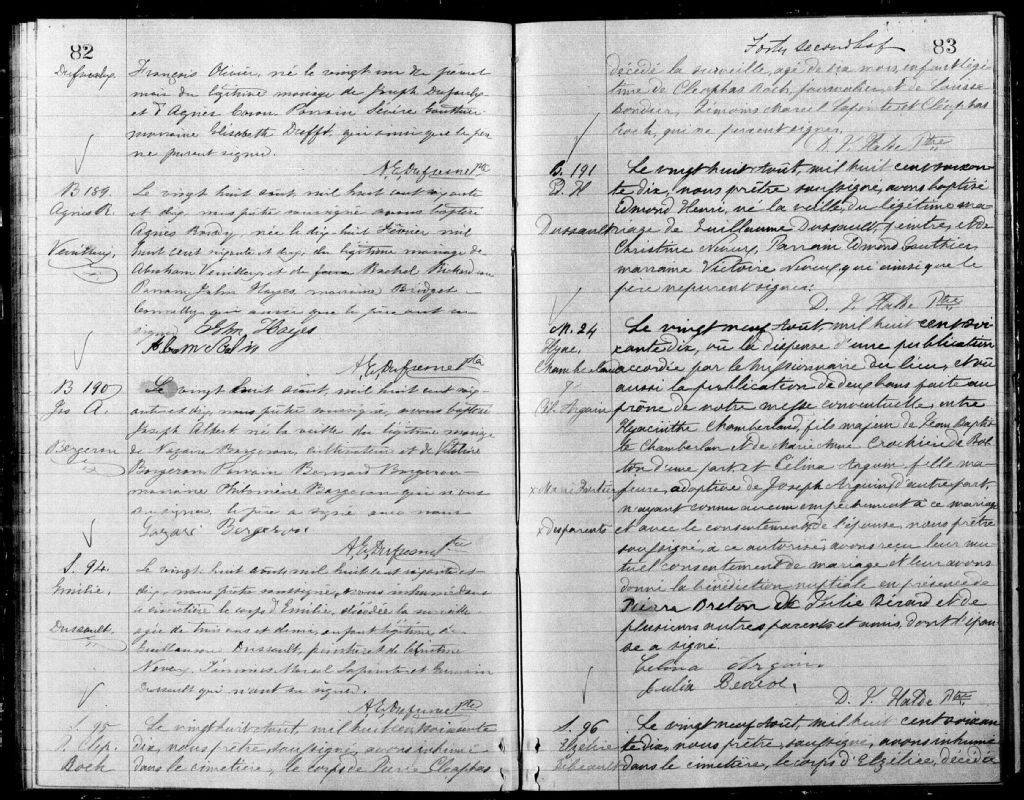 82
Dufresne.
François Olivier, né le vingt un du présent
mois du légitime mariage de Joseph Dufresne
et d'Agnes Caron Parrain Sévère Gauthier
marraine Elisabeth qui ainsi que le père
ne purent signer.
A. E. Dufresne Ptre
B 189.
Agnes R.
Veuilley.
Le vingt huit août mil huit cent soixante
et dix, nous prêtre soussigné avons baptisé
Agnes née le dix huit Février mil
huit cent soixante et dix, du légitime mariage de
Abraham Veuilley et de Rachel
Parrain John Hayes marraine Bridget
Connolly qui ainsi que le père ont
signé. John Hayes
A. E. Dufresne Ptre
B 190
Jos A.
Bergeron
Le vingt huit août mil huit cent soix-
ante et dix, nous prêtre soussigné, avons baptisé
Joseph Albert né la veille du légitime mariage
de Nazaire Bergeron, cultivateur et de
Bergeron Parrain Bernard Bergeron
marraine Philomène Bergeron qui n'ont
su signer, le père a signé avec nous
Bergeron
A. E. Dufresne Ptre
S. 94.
Emilie.
Dussault.
Le vingt huit août, mil huit cent soixante et-
dix, nous prêtre soussigné, avons inhumé dans
le cimetière le corps d'Emilie, décédée la surveille
agée de trois ans et demie, enfant légitime de
Guillaume Dussault, peintre et de Christine
Neveu, Témoins Marcel Lapointe et
Dussault qui n'ont su signer.
A. E. Dufresne Ptre
S. 95
P. Clep.
Roch
Le vingt huit août, mil huit cent soixante
dix, nous prêtre, soussigné, avons inhumé
dans le cimetière, le corps de Pierre Cleophas
Forty second leaf
83
décédé la surveille, agé de dix mois, enfant légi-
time de Cleophas Roch, journalier, et de Louise
Bondier, Témoins Marcel Lapointe et Cléophas
Roch, qui ne purent signer.
D. V. Halde Ptre
B. 191
Ed. H
Dussault
Le vingt huit août, mil huit cent soixan-
te dix, nous prêtre soussigné, avons baptisé
Edmond Henri, né la veille, du légitime ma-
riage de Guillaume Dussault, peintre, et de
Christine Neveux, Parrain Edmond Gauthier,
marraine Victoire Neveux, qui ainsi que le
père ne purent signer.
D. V. Halde Ptre
M. 24
Hyac.
Chamberland
&
Cél. Arguin
Le vingt neuf août, mil huit cent soi-
xante dix, vû la dispense d'une publication
accordée par le Missionnaire du lieu, et vû
aussi la publication de deux bans faite au
prône de notre messe conventuelle, entre
Hyacinthe Chamberland, fils majeur de Jean Baptis-
te Chamberlan et de Marie Anne Crochière de Bol-
ton d'une part et Célina Arguin fille ma-
x Marie Fortier
jeure, adoptive de Joseph Arguin x d'autre part,
n'ayant connu aucun empêchement à ce mariage
x des parents
et avec le consentement x de l'épouse, nous prêtre
soussigné, à ce autorisé, avons reçu leur mu-
tuel consentement de mariage et leur avons
donné la bénédiction nuptiale en présence de
Pierre Breton de Julie Bérard et de
plusieurs autres parents et amis, dont l'épou-
se a signé.
Celina Arguin
Julia Berard.
D. V. Halde Ptre
S. 96
Elzélire
Le vingt neuf août, mil huit cent soixan-
te dix, nous prêtre, soussigné, avons inhumé
dans le cimetière, le corps d'Elzélire, décédée